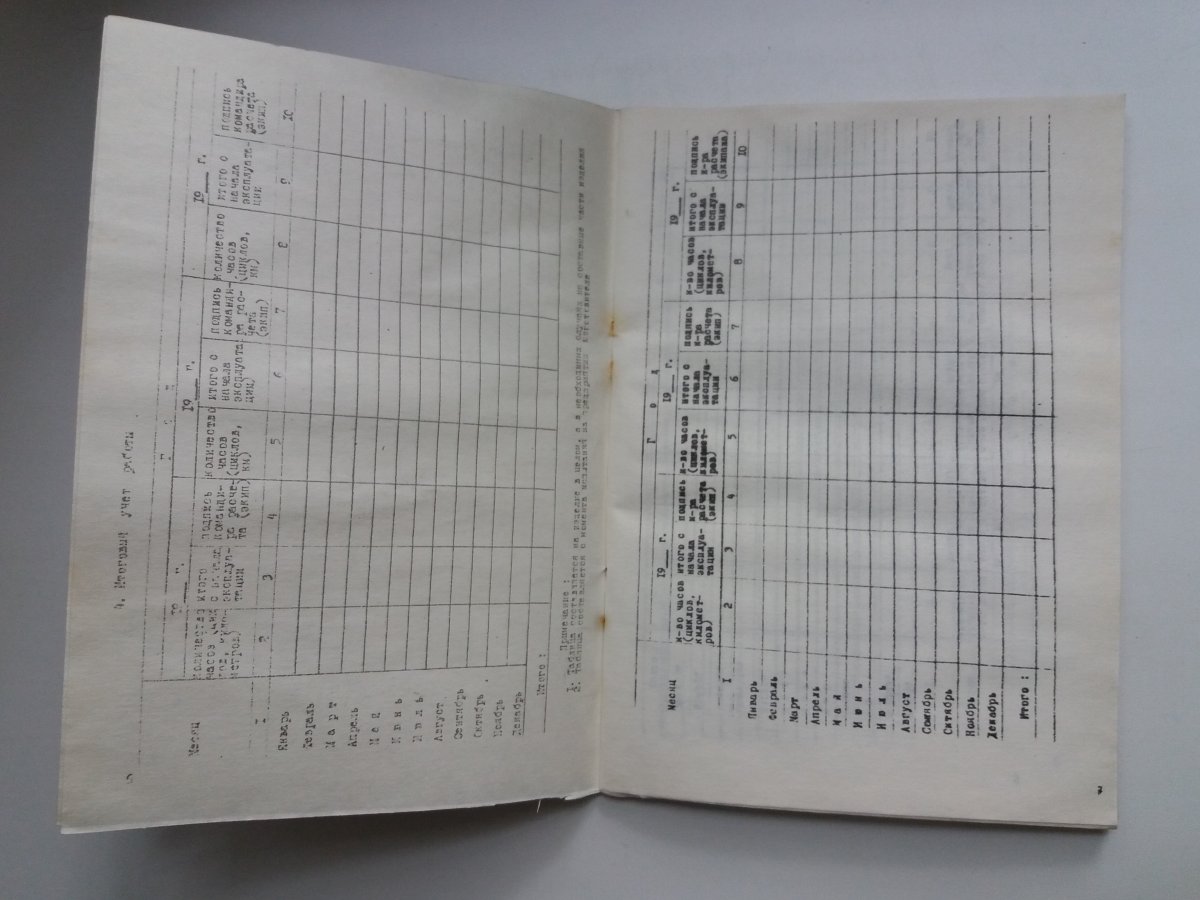 4. Итоговый учет работы
Г о д
19 г.
19 г.
19 г.
Месяц
количество часов (циклов, километров)
итого с начала эксплуатации
подпись командира расчета (экип)
количество часов (циклов, км)
итого с начала эксплуатации
подпись командира расчета (экип)
количество часов (циклов, км)
итого с начала эксплуатации
подпись командира расчета (экип)
I 2 3 4 5 6 7 8 9 10
Январь
Февраль
М а р т
Апрель
М а й
И ю н ь
И ю л ь
Август
Сентябрь
Октябрь
Ноябрь
Декабрь
Итого :
Примечание :
1. Таблица составляется на изделие в целом, а в необходимых случаях на составные части изделия
2. Таблица составляется с момента испытаний на предприятии изготовителе
Г о д
19 г.
19 г.
19 г.
Месяц
к-во часов (циклов, километров)
итого с начала эксплуатации
подпись к-ра расчета (экип)
к-во часов (циклов, километров)
итого с начала эксплуатации
подпись к-ра расчета (экип)
к-во часов (циклов, километров)
итого с начала эксплуатации
подпись к-ра расчета (экипажа)
I 2 3 4 5 6 7 8 9 10
Январь
Февраль
Март
Апрель
М а й
И ю н ь
И ю л ь
Август
Сентябрь
Октябрь
Ноябрь
Декабрь
Итого :
7